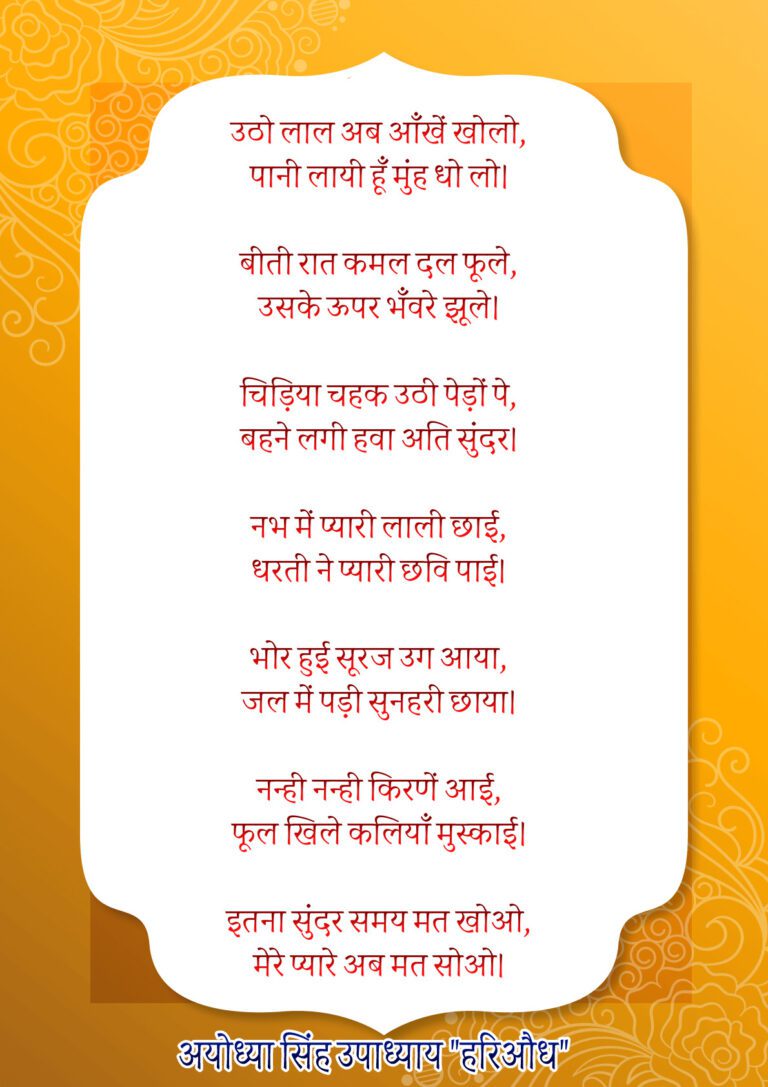 उठो लाल अब आँखें खोलो,
पानी लायी हूँ मुंह धो लो।
बीती रात कमल दल फूले,
उसके ऊपर भँवरे झूले।
चिड़िया चहक उठी पेड़ों पे,
बहने लगी हवा अति सुंदर।
नभ में प्यारी लाली छाई,
धरती ने प्यारी छवि पाई।
भोर हुई सूरज उग आया,
जल में पड़ी सुनहरी छाया।
नन्ही नन्ही किरणें आई,
फूल खिले कलियाँ मुस्काई।
इतना सुंदर समय मत खोओ,
मेरे प्यारे अब मत सोओ।
अयोध्या सिंह उपाध्याय "हरिऔध"